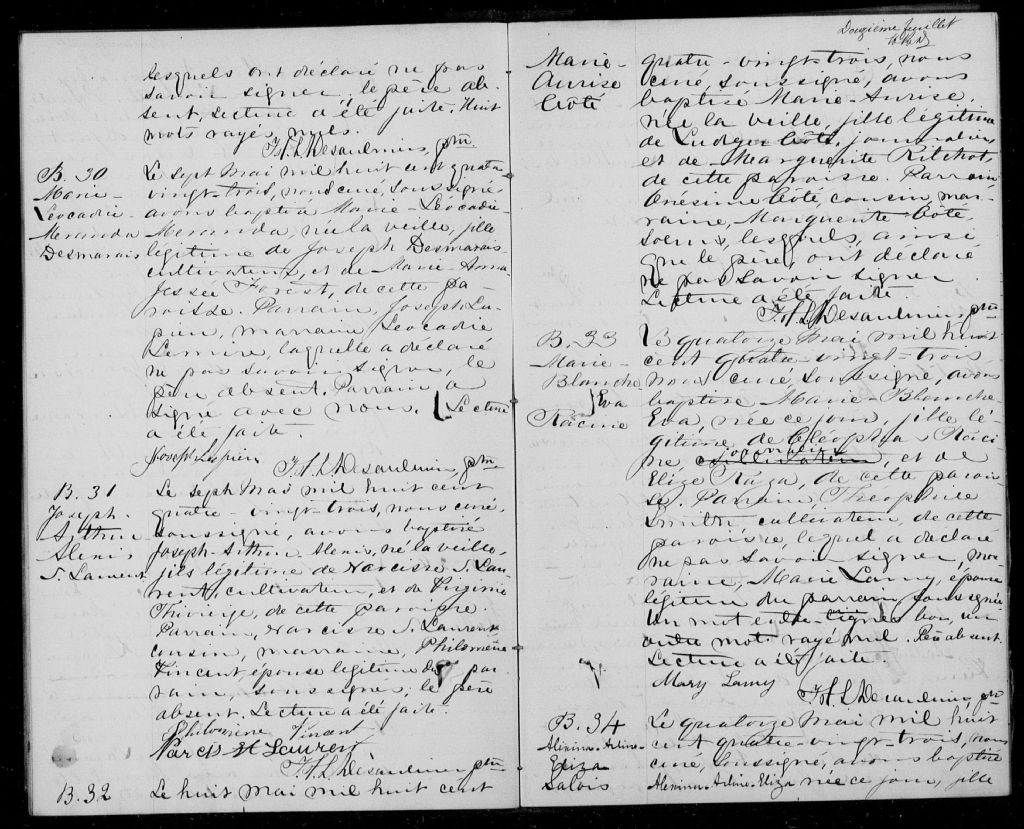 lesquels ont déclaré ne pas
savoir signer, le père ab-
sent. Lecture a été faite. Huit
mots rayés nuls.
B. 30
Marie-
Léocadie-
Meranda
Desmarais
Le sept Mai mil huit cent quatre
vingt-trois, nous curé, soussigné
avons baptisé Marie-Léocadie
Meranda, née la veille, fille
légitime de Joseph Desmarais
cultivateur, et de Marie-Anna
Jessée Forest, de cette pa-
roisse. Parrain, Joseph Lu-
pien, marraine Léocadie
Lemire, laquelle a déclaré
ne pas savoir signer, le
père absent. Parrain a
signé avec nous. Lecture
a été faite.
Joseph Lupien
B. 31
Joseph-
Arthur
Alexis
S. Laurent
Le sept Mai mil huit cent
quatre-vingt-trois, nous curé,
soussigné, avons baptisé
Joseph-Arthur Alexis, né la veille,
fils légitime de Narcisse S. Lau-
rent, cultivateur, et de Virginie
de cette paroisse.
Parrain, Narcisse S. Laurent
cousin, marraine, Philomène
Vincent, épouse légitime du par-
rain, soussignés; le père
absent. Lecture a été faite.
Philomène Vincent
Narcis St Laurent
B. 32
Le huit Mai mil huit cent
Douzième feuillet
Marie-
Aurise
Côté
quatre-vingt-trois, nous
curé, soussigné, avons
baptisé Marie-Aurise,
née la veille, fille légitime
de Ludger Côté, journalier,
et de Marguerite
de cette paroisse. Parrain
Onésime Côté, cousin, mar-
raine, Marguerite Côté,
soeur, lesquels, ainsi
que le père, ont déclaré
ne pas savoir signer.
Lecture a été faite.
B. 33
Marie-
Blanche
Eva
Racine
Le quatorze Mai mil huit
cent quatre-vingt-trois
nous curé, soussigné, avons
baptisé Marie-Blanche-
Eva, née ce jour, fille lé-
gitime de Cléophas Raci-
journalier
ne, cultivateur, et de
Elize de cette parois-
se. Parrain, Théophile
Smith, cultivateur, de cette
paroisse, lequel a déclaré
ne pas savoir signer, mar-
raine, Marie Lamy, épouse
légitime du parrain soussignée
Un mot entre-lignes bon, un
autre mot rayé nul. Père absent.
Lecture a été faite.
Mary Lamy
B. 34
Eliza
Salois
Le quatorze Mai mil huit
cent quatre-vingt-trois, nous
curé, soussigné, avons baptisé
Eliza née ce jour, fille